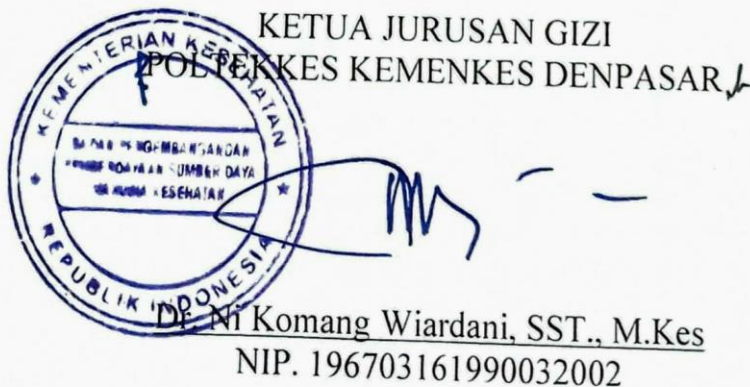 KETUA JURUSAN GIZI
POLTEKKES KEMENKES DENPASAR
KEMENTERIAN KESEHATAN
BADAN PENGEMBANGAN DAN
PEMBERDAYAAN SUMBER DAYA
MANUSIA KESEHATAN
REPUBLIK INDONESIA
Dr. Ni Komang Wiardani, SST., M.Kes
NIP. 196703161990032002